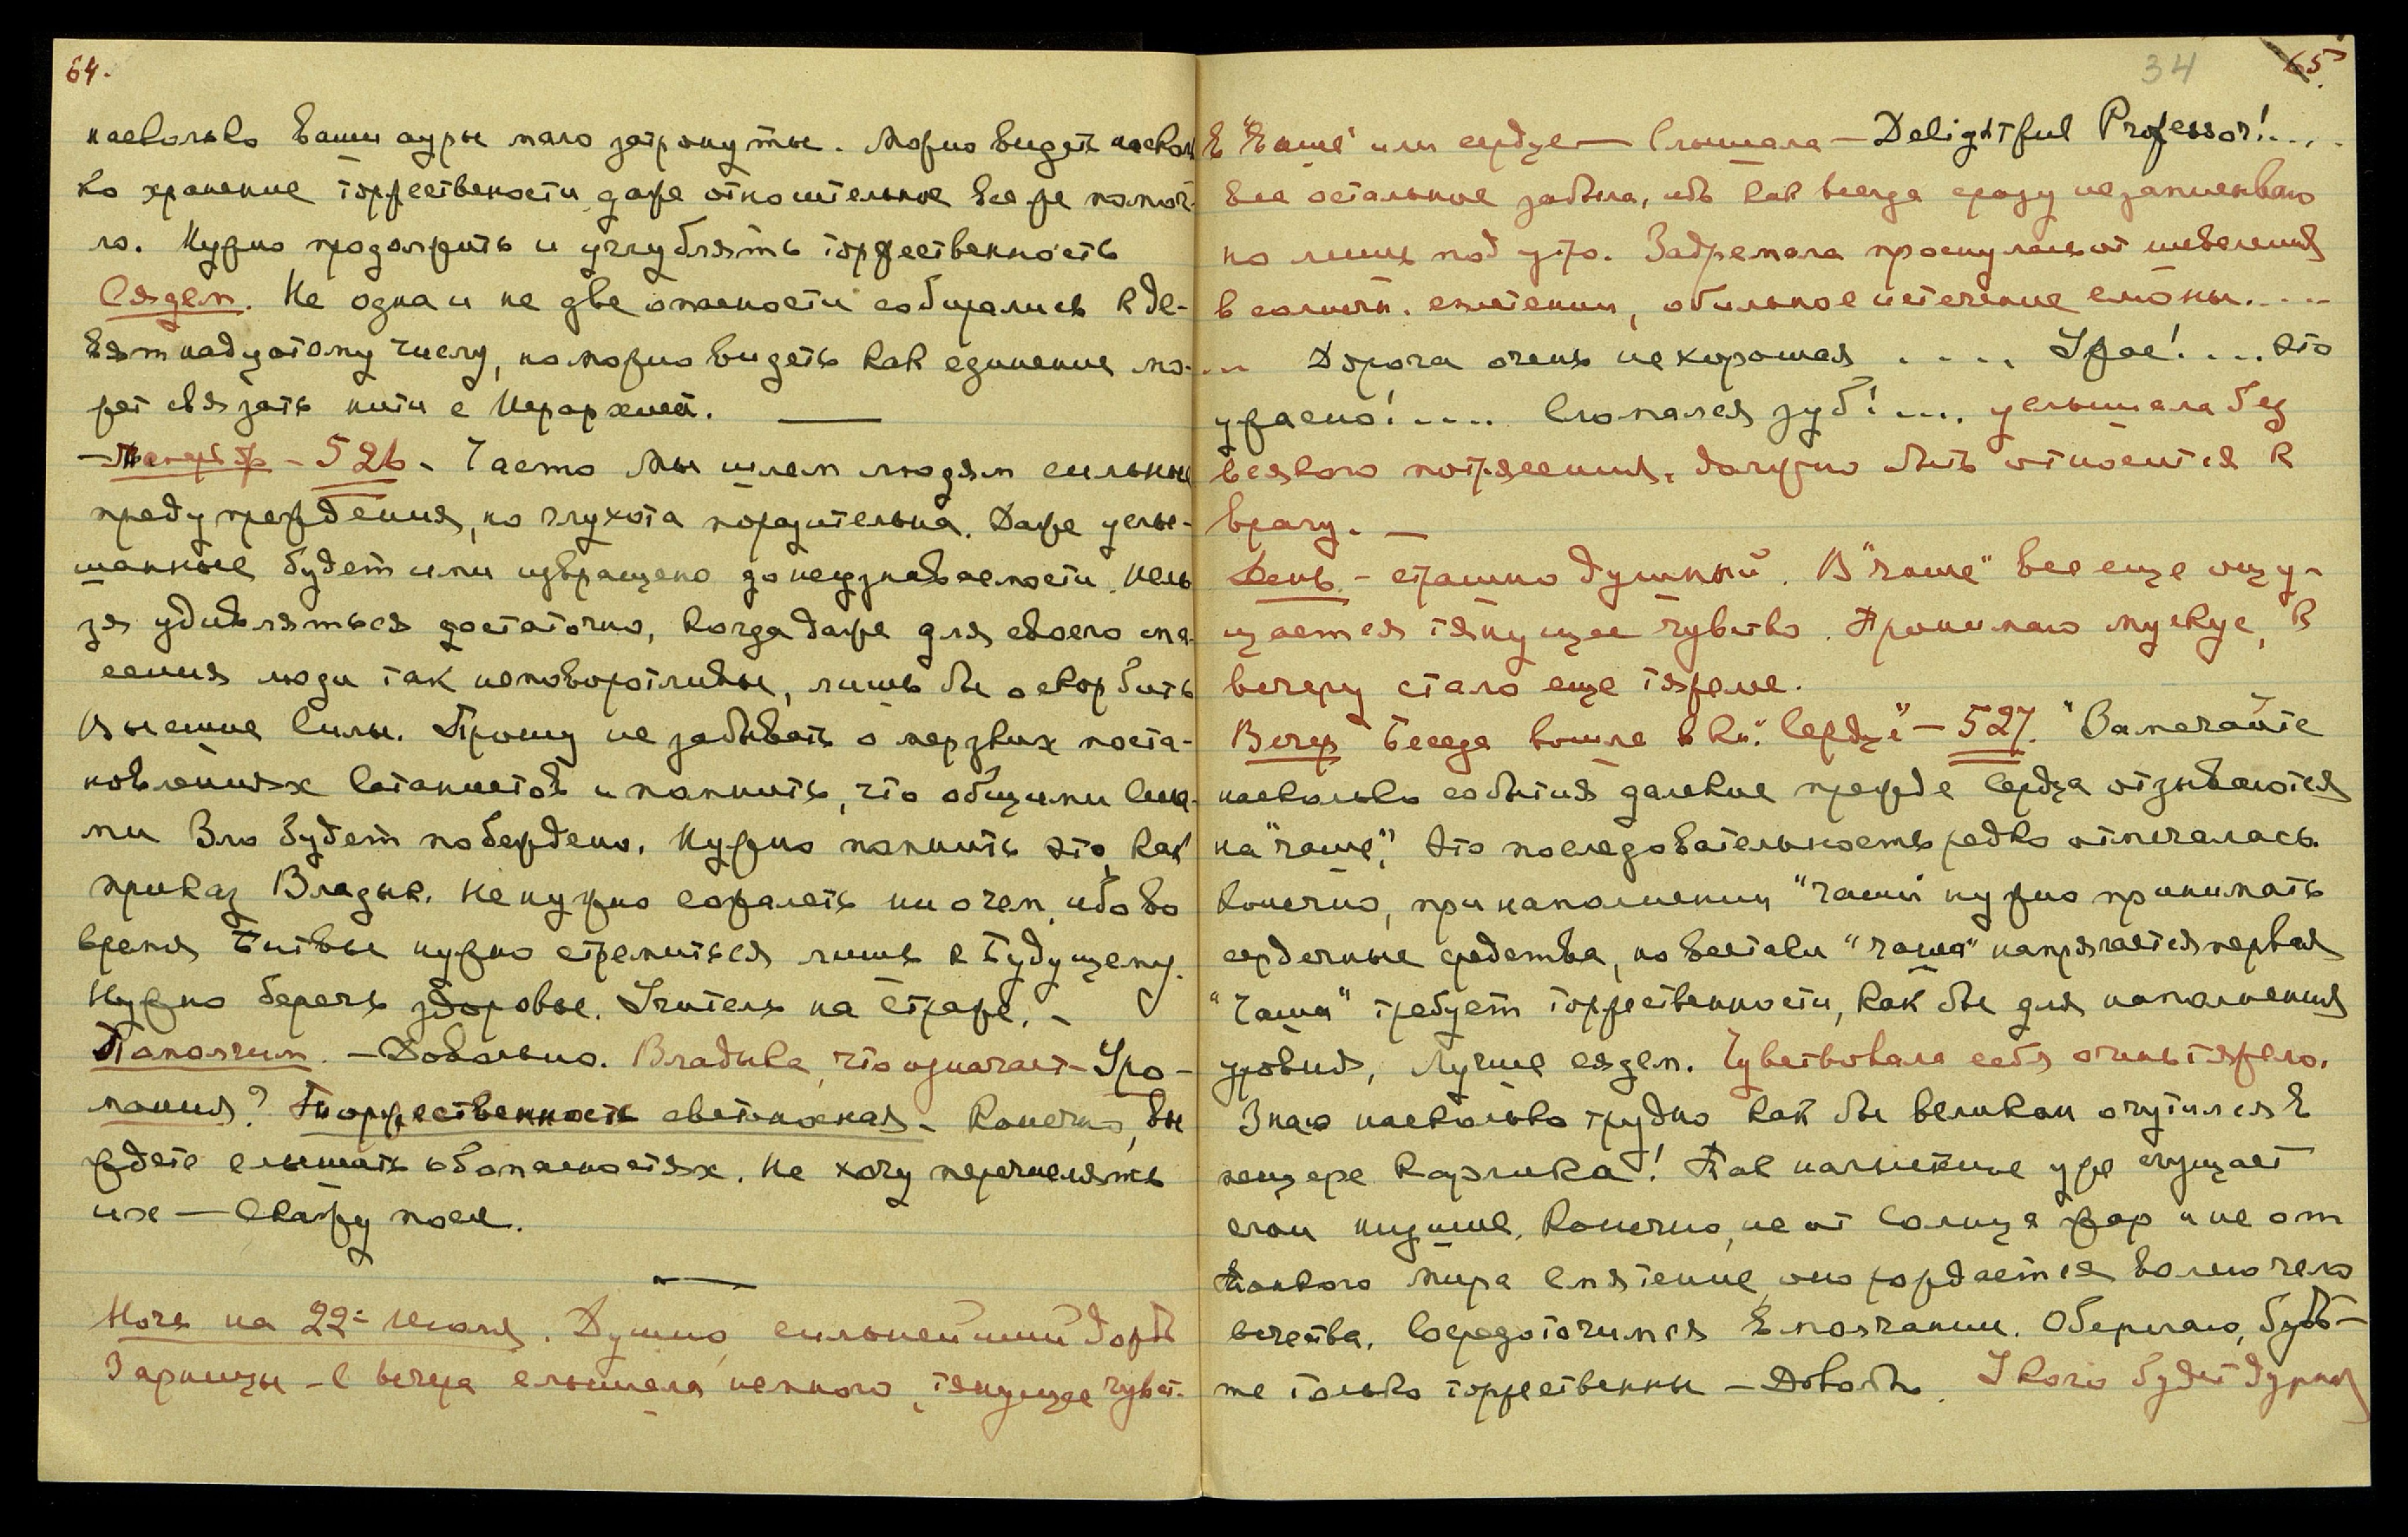 64.
насколько Ваши ауры мало затронуты. Можно видеть насколь
ко хранение торжественности даже относительное все же помог-
ло. Нужно продолжить и углублять торжественность
Сядем. Не одна и не две опасности собирались к де-
вятнадцатому числу, но можно видеть как единение мо-
жет связать нити с Иерархией. —
- 526 - Часто Мы шлем людям сильные
предупреждения, но глухота поразительна. Даже услы-
шанные будет ими извращено до неузнаваемости. Нель
зя удивляться достаточно, когда даже для своего спа-
сения люди так неповоротливы, лишь бы оскорбить
Высшие Силы. Прошу не забывать о мерзких поста-
новлениях Сатанистов и помнить, что общими сила-
ми Зло будет побеждено. Нужно помнить это, как
приказ Владык. Не нужно сожалеть ни о чем, ибо во
время Битвы нужно стремиться лишь к Будущему.
Нужно беречь здоровье. Учитель на Страже. -
Помолчим. - Довольно. Владыка, что означает - Уро-
мония? Торжественность светоносная - Конечно, вы
ждете слышать об опасностях. Не хочу перечислять
их — Скажу после.
—
Ночь на 22-е Июля. Душно, сильнейший дождь
Зарницы - С вечера слышала немного, тянущее чувст.
34 65.
в "Чаше" или сердце — Слышала — Delightful Professor!....
Все остальное забыла, ибо как всегда сразу не записываю
но лишь под утро. Задремала проснулась от шевеления
в солнечн. сплетении, обильное истечение слюны....
... Дорога очень нехорошая .... Ужас!.... Это
ужасно!.... Сломался зуб!.... услышала без
всякого потрясения. Должно быть относится к
врагу. —
День - страшно душный. В "чаше" все еще ощу-
щается тянущее чувство. Принимаю мускус, К
вечеру стало еще тяжелее.
Вечер Беседа вошла в кн. "Сердце" - 527. "Замечайте
насколько события далекие прежде сердца отзываются
на "чаше". Эта последовательность редко отмечалась.
Конечно, при наполнении "чаши" нужно принимать
сердечные средства, но все таки "чаша" напрягается первая
"Чаша" требует торжественности, как бы для наполнения
уровня, Лучше сядем. Чувствовала себя очень тяжело.
Знаю насколько трудно как бы великан очутился в
пещере Карлика! Так напряжение уже сгущает
слои низшие, Конечно, не от Солнца жар и не от
Тонкого Мира Смятение, оно рождается волею чело
вечества. Сосредоточимся в молчании. Оберегаю, будь-
те только торжественны - Довольно. У кого будет дурной